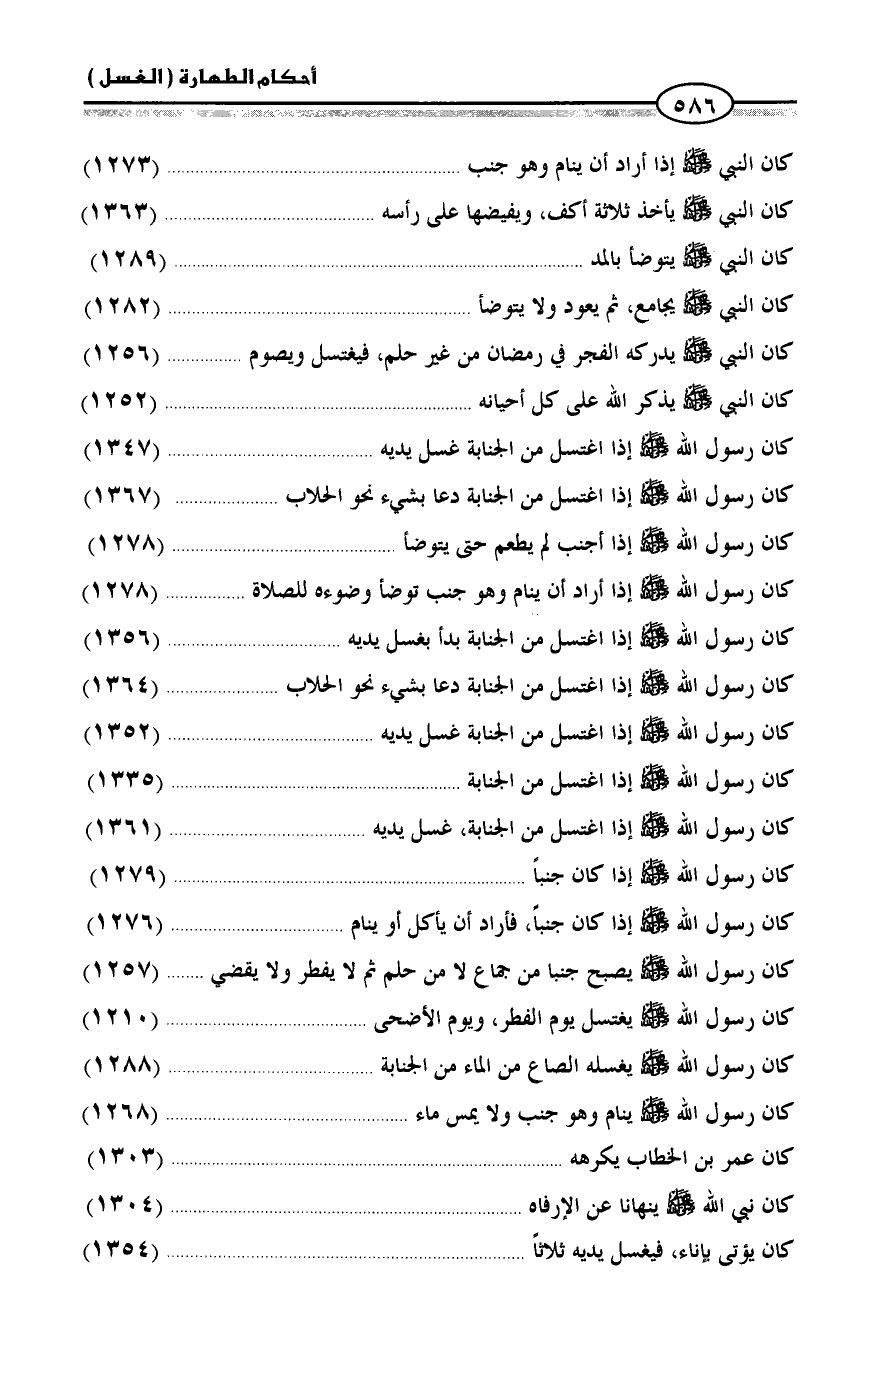 أحكام الطهارة (الغسل)
٥٨٦
كان النبي ﷺ إذا أراد أن ينام وهو جنب .......... (١٢٧٣)
كان النبي ﷺ يأخذ ثلاثة أكف، ويفيضها على رأسه .......... (١٣٦٣)
كان النبي ﷺ يتوضأ بالمد .......... (١٢٨٩)
كان النبي ﷺ يجامع، ثم يعود ولا يتوضأ .......... (١٢٨٢)
كان النبي ﷺ يدركه الفجر في رمضان من غير حلم، فيغتسل ويصوم .......... (١٢٥٦)
كان النبي ﷺ يذكر الله على كل أحيانه .......... (١٢٥٢)
كان رسول الله ﷺ إذا اغتسل من الجنابة غسل يديه .......... (١٣٤٧)
كان رسول الله ﷺ إذا اغتسل من الجنابة دعا بشيء نحو الحلاب .......... (١٣٦٧)
كان رسول الله ﷺ إذا أجنب لم يطعم حتى يتوضأ .......... (١٢٧٨)
كان رسول الله ﷺ إذا أراد أن ينام وهو جنب توضأ وضوءه للصلاة .......... (١٢٧٨)
كان رسول الله ﷺ إذا اغتسل من الجنابة بدأ بغسل يديه .......... (١٣٥٦)
كان رسول الله ﷺ إذا اغتسل من الجنابة دعا بشيء نحو الحلاب .......... (١٣٦٤)
كان رسول الله ﷺ إذا اغتسل من الجنابة غسل يديه .......... (١٣٥٢)
كان رسول الله ﷺ إذا اغتسل من الجنابة .......... (١٣٣٥)
كان رسول الله ﷺ إذا اغتسل من الجنابة، غسل يديه .......... (١٣٦١)
كان رسول الله ﷺ إذا كان جنباً .......... (١٢٧٩)
كان رسول الله ﷺ إذا كان جنباً، فأراد أن يأكل أو ينام .......... (١٢٧٦)
كان رسول الله ﷺ يصبح جنبا من جماع لا من حلم ثم لا يفطر ولا يقضي ........ (١٢٥٧)
كان رسول الله ﷺ يغتسل يوم الفطر، ويوم الأضحى .......... (١٢١٠)
كان رسول الله ﷺ يغسله الصاع من الماء من الجنابة .......... (١٢٨٨)
كان رسول الله ﷺ ينام وهو جنب ولا يمس ماء .......... (١٢٦٨)
كان عمر بن الخطاب يكرهه .......... (١٣٠٣)
كان نبي الله ﷺ ينهانا عن الإرفاه .......... (١٣٠٤)
كان يؤتى بإناء، فيغسل يديه ثلاثاً .......... (١٣٥٤)